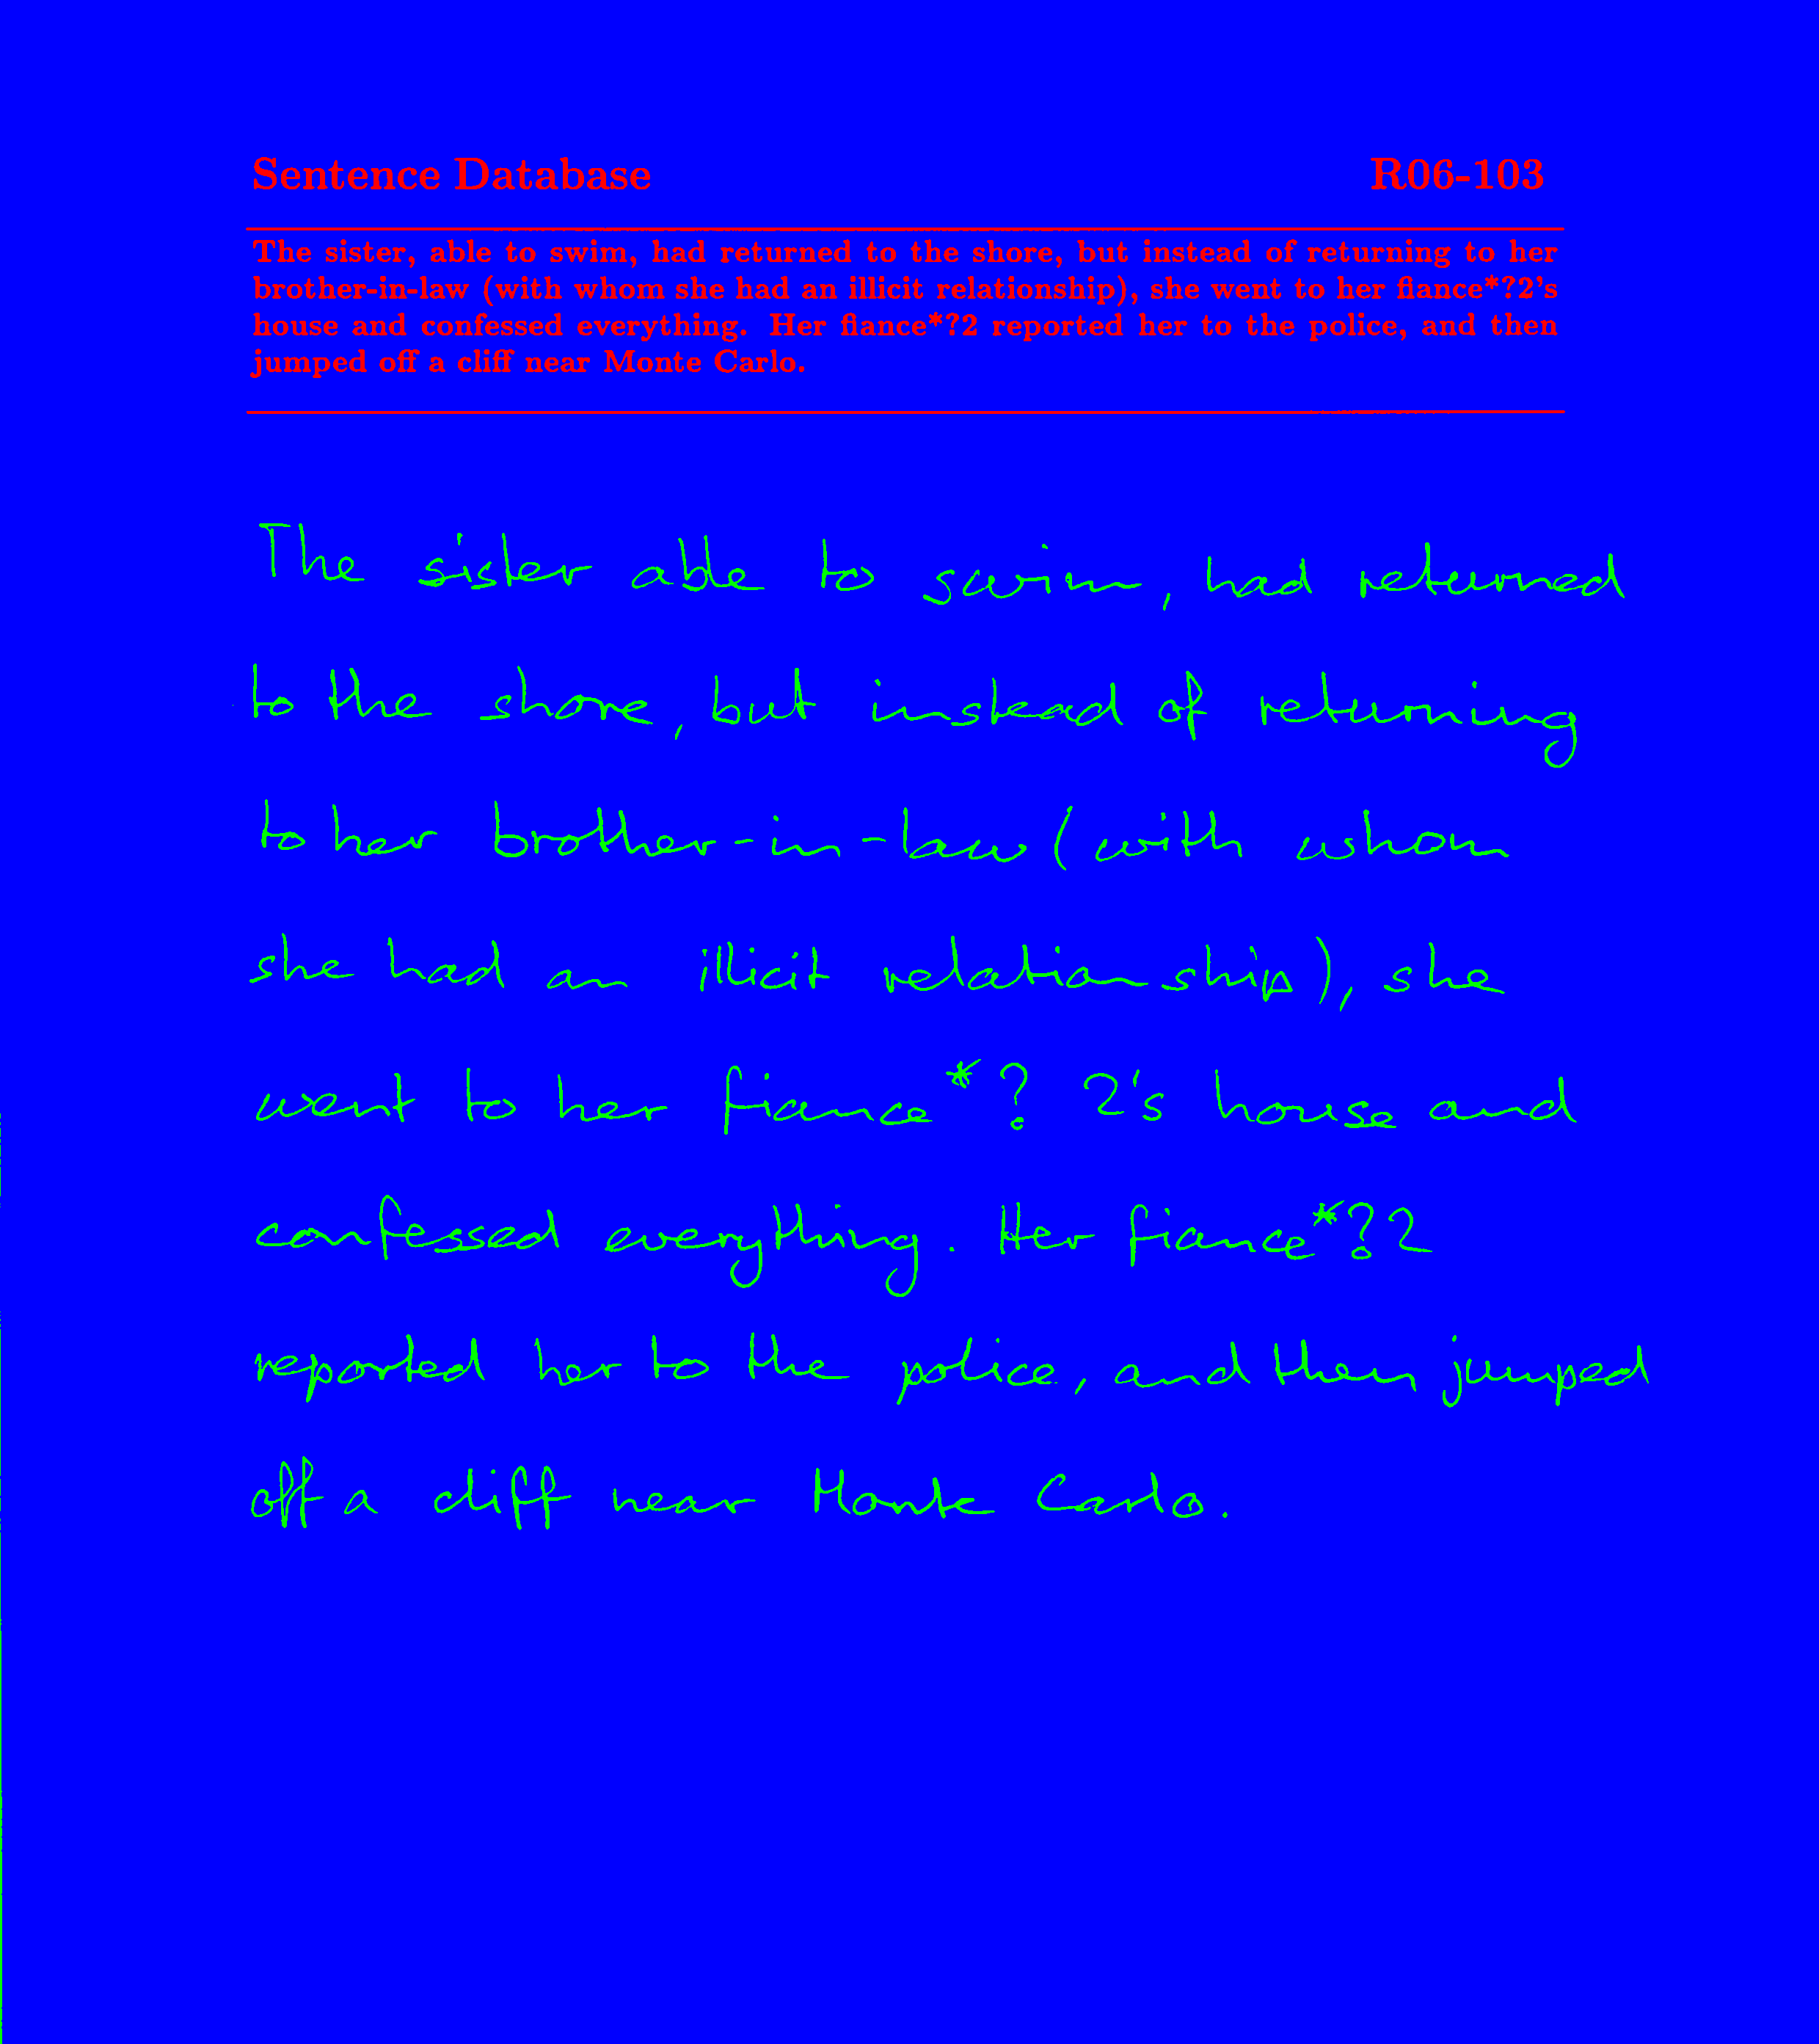 Sentence Database R06-103
The sister, able to swim, had returned to the shore, but instead of returning to her
brother-in-law (with whom she had an illicit relationship), she went to her fiance*?2's
house and confessed everything. Her fiance*?2 reported her to the police, and then
jumped off a cliff near Monte Carlo.
The sister able to swim, had returned
to the shore, but instead of returning
to her brother-in-law (with whom
she had an illicit relationship), she
went to her fiance*? 2's house and
confessed everything. Her fiance*?2
reported her to the police, and then jumped
off a cliff near Monte Carlo.